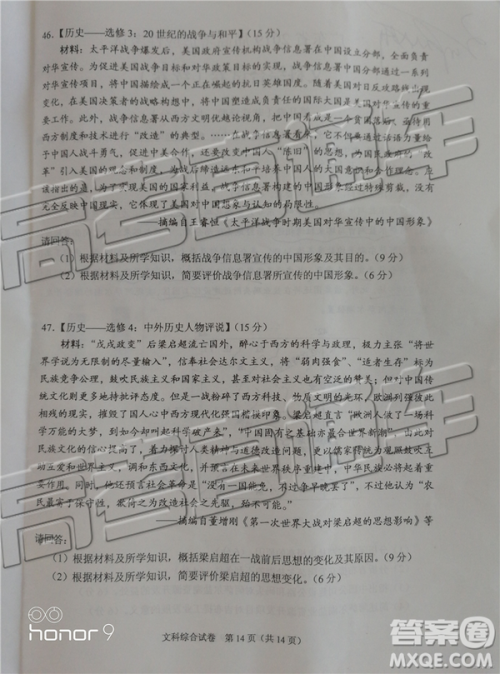 46.【历史——选修3：20世纪的战争与和平】(15分)
材料：太平洋战争爆发后，美国政府宣传机构战争信息署在中国设立分部，全面负责
对华宣传。为促进美国战争目标和对华政策目标的实现，战争信息署中国分部通过一系列
对华宣传项目，将中国描绘成一个正在崛起的抗日英雄国度。随着美国对日反攻路线出现
变化，在美国决策者的战略构想中，将中国塑造成负责任的国际大国是美国对华宣传的重
要工作。此外，战争信息署从西方文明优越论视角，把中国看成是一个贫弱落后、亟待用
西方制度和技术进行“改造”的典型。……在战争信息署看来，它不仅要通过话语力量给
于中国人战斗勇气，促进中美合作，还要改变中国人“陈旧”的思想，
革”引入美国的民主制度，在战后延续
掺杂的是，为了实现美国的国家利益，战争信息署构建的中国形象充满着想象，没有
完全反映中国现实，它体现了美国对中国想象与认知的局限性。
——摘编自王睿恒《太平洋战争时期美国对华宣传中的中国形象》
请回答：
(1) 根据材料及所学知识，概括战争信息署宣传的中国形象及其目的。(9分)
(2) 根据材料及所学知识，简要评价战争信息署所宣传的中国形象。(6分)
47.【历史——选修4：中外历史人物评说】(15分)
材料：“戊戌政变”后梁启超流亡国外，醉心于西方的科学与政理，极力主张“将世
界学说为无限制的尽量输入”，信奉社会达尔文主义，将“弱肉强食”、“适者生存”标为
民族竞争公理，鼓吹民族主义和国家主义，甚至为西方殖民侵略行为辩护，而对中国传
统文化则更多地持批评态度。但一战粉碎了西方科技、文明的优越表象，欧洲列强彼此相
残的现实，摧毁了国人心中西方现代化强国楷模印象。梁启超宣布“欧洲人做了一场科
学万能的大梦，到如今却叫起科学破产来”，“中国固有之基础亦最合世界新潮”，由此对
民族文化的信心提高了，在考量人类精神与道德改造问题上，更以儒家传统
欧美之社会主义，调和东西文化，并预言在世界秩序重建中，中华民族必将
作用。同时，他还预言英国会照旧是“没有一国能免，不过争早晚罢了”，不过他认为“农
民最富于保守性，素为之改造社会之先驱，殆不可能。”
——摘编自董增刚《第一次世界大战对梁启超的思想影响》等
请回答：
(1) 根据材料及所学知识，概括梁启超在一战前后思想的变化及其原因。(9分)
(2) 根据材料及所学知识，简要评价梁启超的思想变化。(6分)
文科综合试卷 第14页（共14页）
honor 9
高考直通车
答案圈
MXQE.COM